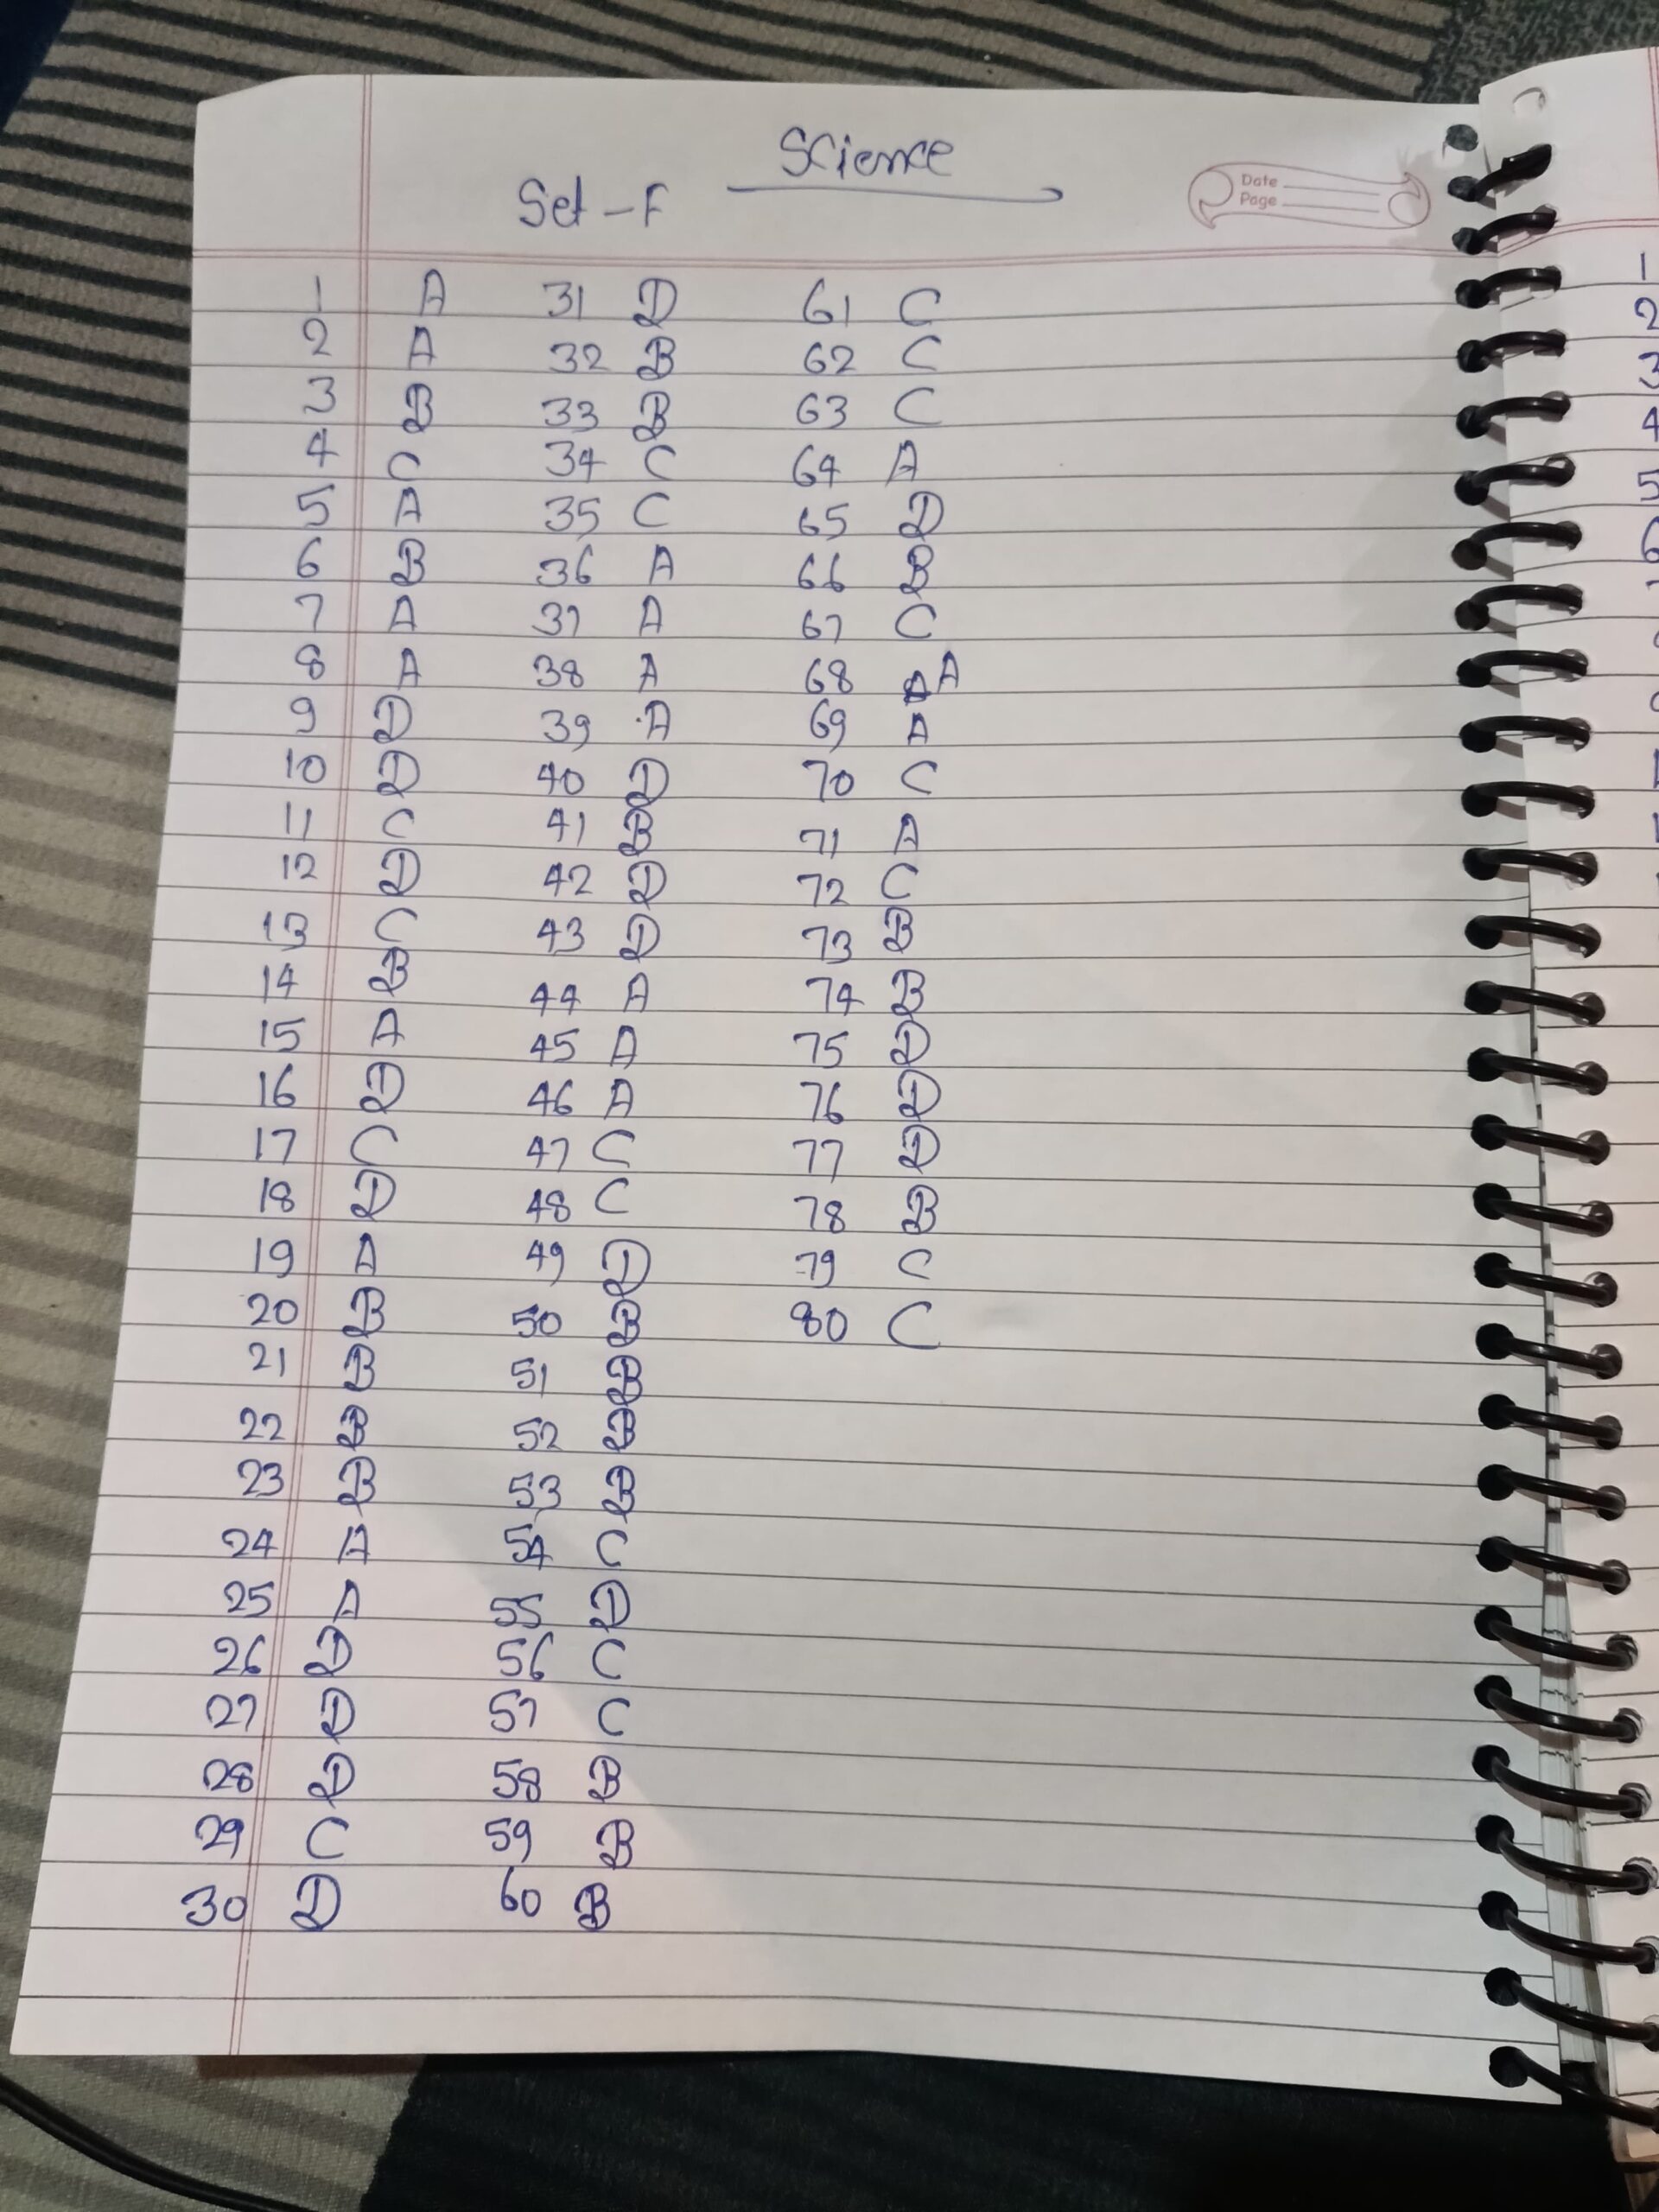 Science
Set - F
Date
Page
1 A 31 D 61 C
2 A 32 B 62 C
3 B 33 B 63 C
4 C 34 C 64 A
5 A 35 C 65 D
6 B 36 A 66 B
7 A 37 A 67 C
8 A 38 A 68 A A
9 D 39 A 69 A
10 D 40 D 70 C
11 C 41 B 71 A
12 D 42 D 72 C
13 C 43 D 73 B
14 B 44 A 74 B
15 A 45 A 75 D
16 D 46 A 76 D
17 C 47 C 77 D
18 D 48 C 78 B
19 A 49 D 79 C
20 B 50 B 80 C
21 B 51 B
22 B 52 B
23 B 53 B
24 A 54 C
25 A 55 D
26 D 56 C
27 D 57 C
28 D 58 B
29 C 59 B
30 D 60 B
1
2
3
4
5
6